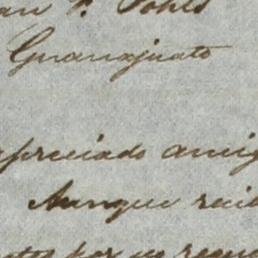 P. Pohls
Guanajuato
apreciado amig
Aunque recib
por no